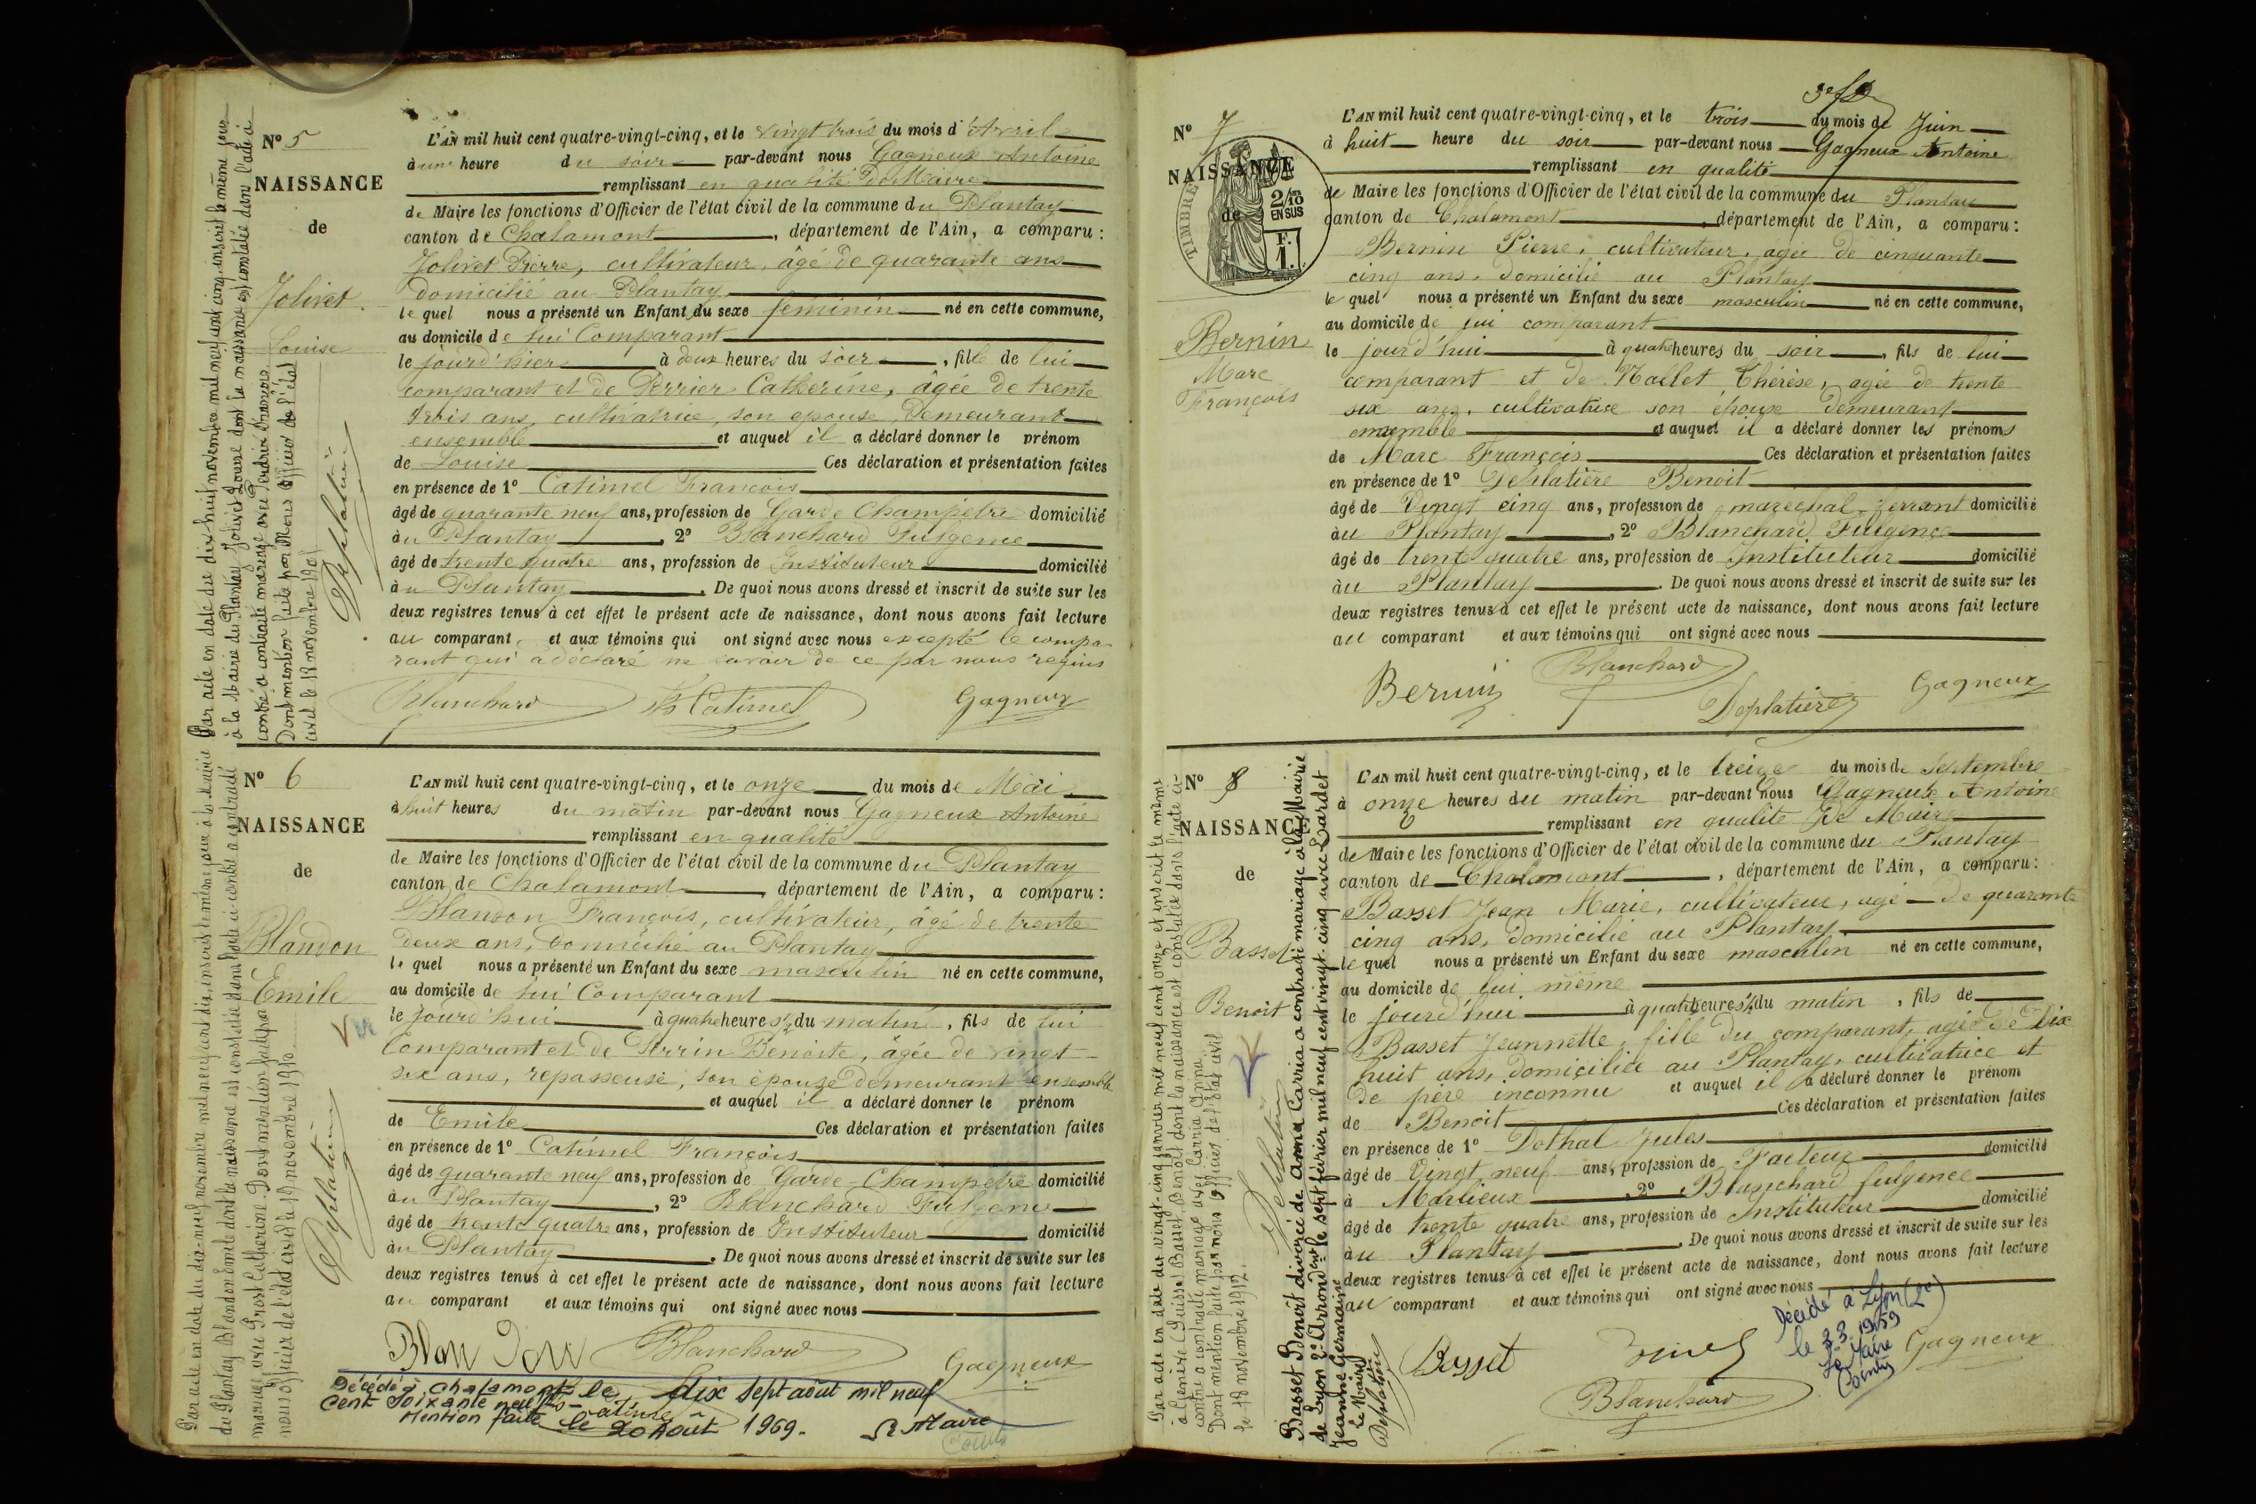 Nº 5
NAISSANCE
de
Jolivet
Louise
L'AN mil huit cent quatre-vingt-cinq, et le vingt trois du mois d'Avril
à une heure du soir par-devant nous Gagneux Antoine
remplissant en qualité De Maire
de Maire les fonctions d'Officier de l'état civil de la commune du Plantay
canton de Chalamont, département de l'Ain, a comparu :
Jolivet Pierre, cultivateur, âgé de quarante ans
domicilié au Plantay
le quel nous a présenté un Enfant du sexe féminin né en cette commune,
au domicile de lui Comparant
le jourd'hier à deux heures du soir, fille de lui
comparant et de Perrier Catherine, âgée de trente
trois ans, cultivatrice, son épouse, Demeurant
ensemble et auquel il a déclaré donner le prénom
de Louise Ces déclaration et présentation faites
en présence de 1º Catimel François
âgé de quarante neuf ans, profession de Garde Champêtre domicilié
au Plantay, 2º Blanchard Fulgence
âgé de trente quatre ans, profession de Instituteur domicilié
au Plantay. De quoi nous avons dressé et inscrit de suite sur les
deux registres tenus à cet effet le présent acte de naissance, dont nous avons fait lecture
au comparant et aux témoins qui ont signé avec nous excepté le compa-
rant qui a déclaré ne savoir de ce par nous requis
Blanchard Catimel Gagneux
Par acte en date du dix-huit novembre mil neuf cent cinq, inscrit le même jour
à la Mairie du Plantay, Jolivet Louise dont la naissance est constatée dans l'acte ci
contre a contracté mariage avec Perdrix François.
Dont mention faite par Nous Officier de l'état
civil le 18 novembre 1905
Deplatière
Nº 6
NAISSANCE
de
Blandon
Emile
L'AN mil huit cent quatre-vingt-cinq, et le onze du mois de Mai
à huit heures du matin par-devant nous Gagneux Antoine
remplissant en qualité
de Maire les fonctions d'Officier de l'état civil de la commune du Plantay
canton de Chalamont, département de l'Ain, a comparu :
Blandon François, cultivateur, âgé de trente
deux ans, domicilié au Plantay
le quel nous a présenté un Enfant du sexe masculin né en cette commune,
au domicile de lui Comparant
le jourd'hui à quatre heures ½ du matin, fils de lui
Comparant et de Perrin Benoite, âgée de vingt
six ans, repasseuse, son épouse demeurant ensemble
et auquel il a déclaré donner le prénom
de Emile Ces déclaration et présentation faites
en présence de 1º Catimel François
âgé de quarante neuf ans, profession de Garde-Champêtre domicilié
au Plantay, 2º Blanchard Fulgence
âgé de trente quatre ans, profession de Instituteur domicilié
au Plantay. De quoi nous avons dressé et inscrit de suite sur les
deux registres tenus à cet effet le présent acte de naissance, dont nous avons fait lecture
au comparant et aux témoins qui ont signé avec nous
Blandon Blanchard Gagneux
Décédé à Chalamont le dix sept août mil neuf
cent soixante neuf
Mention faite le 20 Août 1969. Le Maire
Par acte en date du dix-neuf novembre mil neuf cent dix, inscrit le même jour à la Mairie
du Plantay Blandon Emile dont la naissance est constatée dans l'acte ci contre a contracté
mariage avec Prost Catherine. Dont mention faite par
nous officier de l'état civil le 19 novembre 1910
Deplatière
Nº 7
NAISSANCE
de
TIMBRE
2/10 EN SUS
F. 1.
Bernin
Marc
François
L'AN mil huit cent quatre-vingt-cinq, et le trois du mois de Juin
à huit heure du soir par-devant nous Gagneux Antoine
remplissant en qualité
de Maire les fonctions d'Officier de l'état civil de la commune du Plantay
canton de Chalamont département de l'Ain, a comparu :
Bernin Pierre, cultivateur, agée de cinquante
cinq ans, domicilié au Plantay
le quel nous a présenté un Enfant du sexe masculin né en cette commune,
au domicile de lui comparant
le jourd'hui à quatre heures du soir, fils de lui
comparant et de Mallet Thérèse, agée de trente
six ans, cultivatrice son épouse demeurant
ensemble et auquel il a déclaré donner les prénoms
de Marc François Ces déclaration et présentation faites
en présence de 1º Deplatière Benoit
âgé de Vingt cinq ans, profession de maréchal-ferrant domicilié
au Plantay, 2º Blanchard Fulgence
âgé de trent quatre ans, profession de Instituteur domicilié
au Plantay. De quoi nous avons dressé et inscrit de suite sur les
deux registres tenus à cet effet le présent acte de naissance, dont nous avons fait lecture
au comparant et aux témoins qui ont signé avec nous
Bernin Blanchard Deplatière Gagneux
Nº 8
NAISSANCE
de
Basset
Benoit
L'AN mil huit cent quatre-vingt-cinq, et le treize du mois de Septembre
à onze heures du matin par-devant nous Gagneux Antoine
remplissant en qualité De Maire
de Maire les fonctions d'Officier de l'état civil de la commune du Plantay
canton de Chalamont, département de l'Ain, a comparu :
Basset Jean Marie, cultivateur, agé de quarante
cinq ans, domicilié au Plantay
le quel nous a présenté un Enfant du sexe masculin né en cette commune,
au domicile de lui même
le jourd'hui à quatre heures ½ du matin, fils de
Basset Jeannette, fille du comparant, agée de Dix
huit ans, domiciliée au Plantay, cultivatrice et
de père inconnu et auquel il a déclaré donner le prénom
de Benoit Ces déclaration et présentation faites
en présence de 1º Dothal Jules
âgé de Vingt neuf ans, profession de Facteur domicilié
à Marlieux, 2º Blanchard fulgence
âgé de trente quatre ans, profession de Instituteur domicilié
au Plantay. De quoi nous avons dressé et inscrit de suite sur les
deux registres tenus à cet effet le présent acte de naissance, dont nous avons fait lecture
au comparant et aux témoins qui ont signé avec nous
Basset Blanchard Gagneux
Décédé à Lyon (2e)
le 3-3-1959
Le Maire
Par acte en date du vingt-cinq janvier mil neuf cent onze et inscrit le même
à Genève (Suisse) Basset Benoit dont la naissance est constatée dans l'acte ci-
contre a contracté mariage avec Carria Anna.
Dont mention faite par nous Officier de l'état civil
le 18 novembre 1912.
Deplatière
Basset Benoit divorcé de Anna Carria a contracté mariage à la Mairie
de Lyon 2e Arrondt le sept février mil neuf cent vingt-cinq avec Dardet
Jeanne Germaine
Le Maire
Deplatière